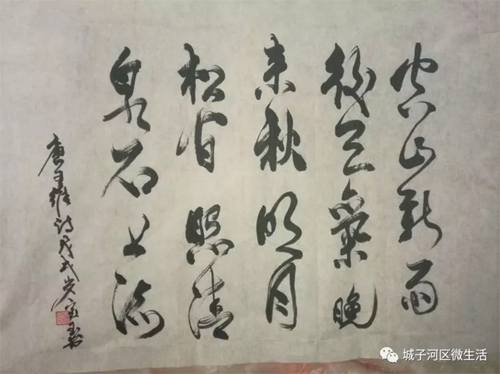 空山新雨
後天氣晚
来秋明月
松间照清
泉石上流
唐王维诗戊戌
城子河区微生活